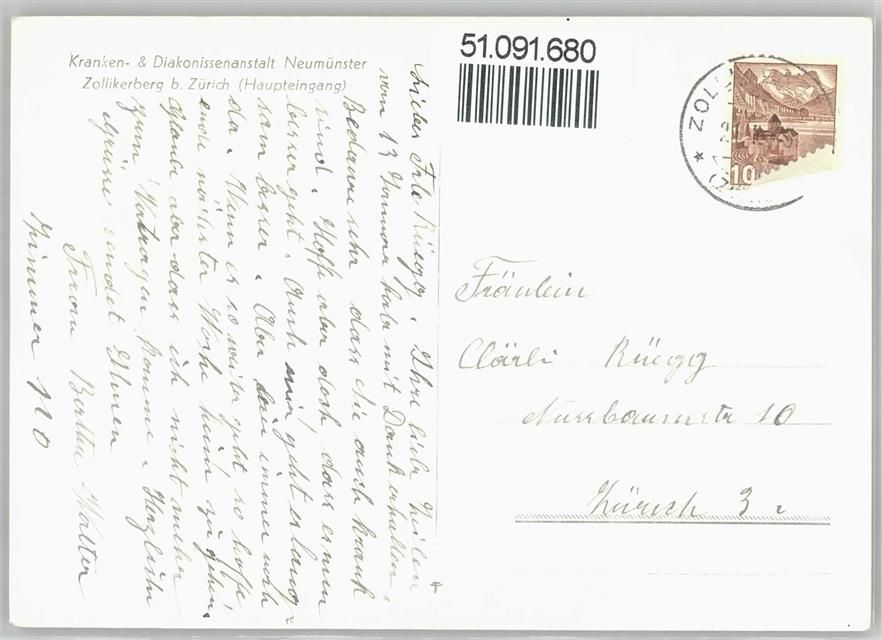 Kranken- & Diakonissenanstalt Neumünster
Zollikerberg b. Zürich (Haupteingang)
51.091.680
ZOLL
10
Liebes Frl. Rüegg. Ihre lieb Zeilen
vom 13 Januar hab mit Dank erhalten.
Bedaure sehr dass Sie auch krank
sind. Hoffe aber doch dass es nun
besser geht. Auch mir geht es lang-
sam besser. Aber bin immer noch
da. Wenn es so weiter geht, so hoffe
ende nächster Woche heim zu gehen.
Glaube aber dass ich nicht mehr
zum Vatragen komme. Herzliche
Grüsse sendet Ihnen
Frau Bertha Walter
Zimmer 110
Fräulein
Clärli Rüegg
Nussbaumstr 10
Zürich 3.